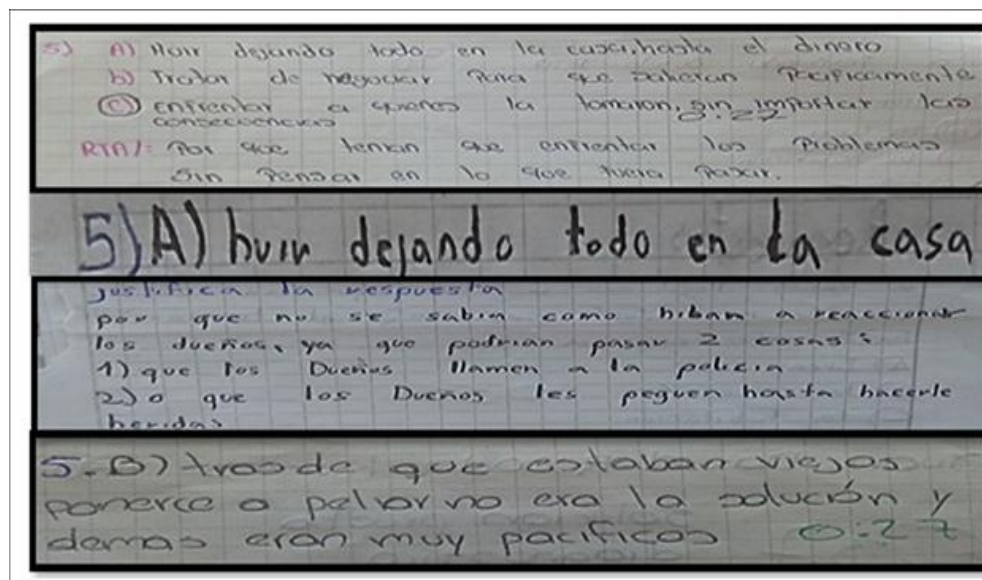 5) A) Huir dejando todo en la casa, hasta el dinero
b) Tratar de negociar para que salieran pacificamente
C) enfrentar a quienes la tomaron, sin importar las
consecuencias 0:27
RTA/: Por que tenian que enfrentar los problemas
sin pensar en lo que fuera pasar.
5) A) huir dejando todo en la casa
justifica la respuesta
por que no se sabia como hiban a reaccionar
los dueños, ya que podrian pasar 2 cosas:
1) que los Dueños llamen a la policia
2) o que los Dueños les peguen hasta hacerle
heridas
5. B) tras de que estaban viejos
ponerce a peliar no era la solución y
demas eran muy pacificos 0:27